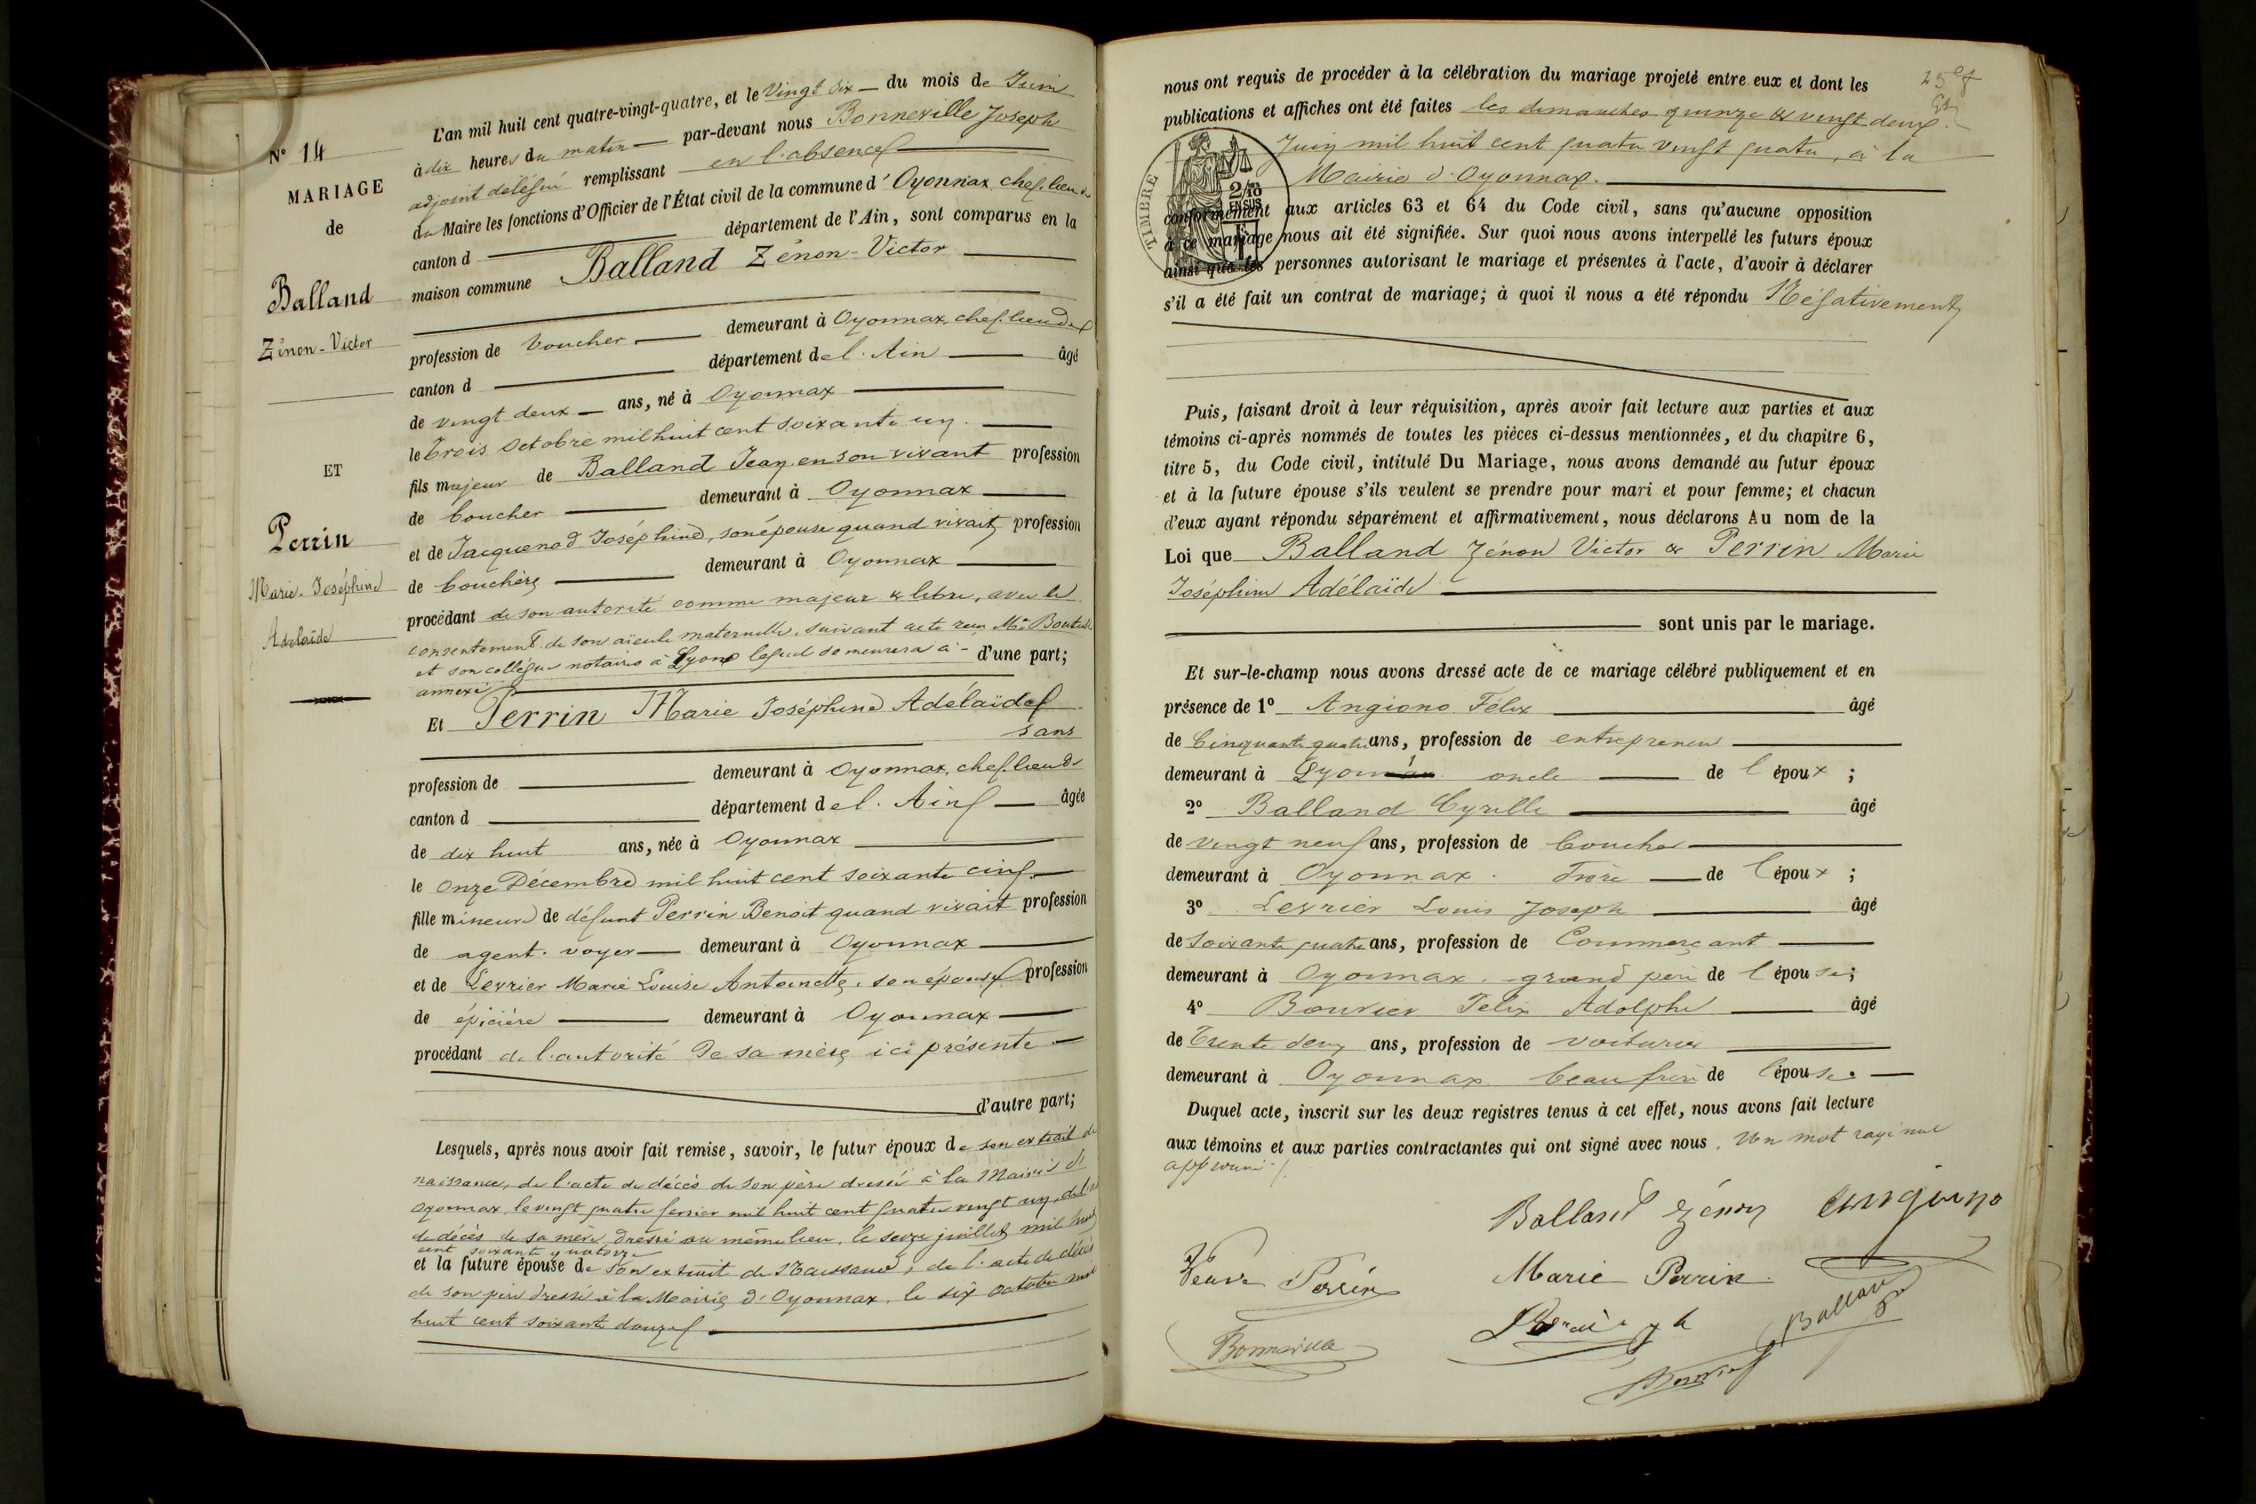 N° 14
MARIAGE
de
Balland
Zénon-Victor
ET
Perrin
Marie-Joséphine
Adélaïde
L'an mil huit cent quatre-vingt-quatre, et le Vingt six du mois de Juin
à dix heures du matin par-devant nous Bonneville Joseph
adjoint délégué remplissant en l'absence
du Maire les fonctions d'Officier de l'État civil de la commune d'Oyonnax, chef-lieu de
canton d département de l'Ain, sont comparus en la
maison commune Balland Zénon-Victor
profession de boucher demeurant à Oyonnax, chef-lieu de
canton d département de l'Ain âgé
de vingt deux ans, né à Oyonnax
le trois octobre mil huit cent soixante un.
fils majeur de Balland Jean, en son vivant profession
de boucher demeurant à Oyonnax
et de Jacquenod Joséphine, son épouse quand vivait, profession
de bouchère demeurant à Oyonnax
procédant de son autorité comme majeur & libre, avec le
consentement de son aïeule maternelle, suivant acte reçu Me
et son collègue notaires à Lyon lequel demeurera ci-
annexé d'une part;
Et Perrin Marie Joséphine Adélaïde
sans
profession de demeurant à Oyonnax, chef-lieu de
canton d département de l'Ain âgée
de dix huit ans, née à Oyonnax
le onze Décembre mil huit cent soixante cinq.
fille mineure de défunt Perrin Benoit quand vivait profession
de agent-voyer demeurant à Oyonnax
et de Levrier Marie Louise Antoinette, son épouse profession
de épicière demeurant à Oyonnax
procédant de l'autorité de sa mère ici présente
d'autre part;
Lesquels, après nous avoir fait remise, savoir, le futur époux de son extrait de
naissance, de l'acte de décès de son père dressé à la Mairie d'
Oyonnax, le vingt quatre février mil huit cent quatre vingt un, de l'acte
de décès de sa mère, dressé au même lieu, le seize juillet mil huit
cent soixante quatorze
et la future épouse de son extrait de Naissance, de l'acte de décès
de son père dressé à la Mairie d'Oyonnax, le six octobre mil
huit cent soixante douze
nous ont requis de procéder à la célébration du mariage projeté entre eux et dont les
publications et affiches ont été faites les dimanches quinze & vingt deux
Juin mil huit cent quatre vingt quatre, à la
Mairie d'Oyonnax.
TIMBRE
2/10
EN SUS
conformément aux articles 63 et 64 du Code civil, sans qu'aucune opposition
à ce mariage nous ait été signifiée. Sur quoi nous avons interpellé les futurs époux
ainsi que les personnes autorisant le mariage et présentes à l'acte, d'avoir à déclarer
s'il a été fait un contrat de mariage; à quoi il nous a été répondu Négativement
Puis, faisant droit à leur réquisition, après avoir fait lecture aux parties et aux
témoins ci-après nommés de toutes les pièces ci-dessus mentionnées, et du chapitre 6,
titre 5, du Code civil, intitulé Du Mariage, nous avons demandé au futur époux
et à la future épouse s'ils veulent se prendre pour mari et pour femme; et chacun
d'eux ayant répondu séparément et affirmativement, nous déclarons Au nom de la
Loi que Balland Zénon Victor & Perrin Marie
Joséphine Adélaïde
sont unis par le mariage.
Et sur-le-champ nous avons dressé acte de ce mariage célébré publiquement et en
présence de 1° Angiono Félix âgé
de Cinquante quatre ans, profession de entrepreneur
demeurant à Lyon oncle de l'époux ;
2° Balland Cyrille âgé
de vingt neuf ans, profession de boucher
demeurant à Oyonnax. frère de l'époux ;
3° Levrier Louis Joseph âgé
de soixante quatre ans, profession de Commerçant
demeurant à Oyonnax. grand père de l'épouse;
4° Bouvier Félix Adolphe âgé
de Trente deux ans, profession de voiturier
demeurant à Oyonnax. beau frère de l'épouse.
Duquel acte, inscrit sur les deux registres tenus à cet effet, nous avons fait lecture
aux témoins et aux parties contractantes qui ont signé avec nous. Un mot rayé nul
approuvé
Balland Zénon Angiono
Veuve Perrin Marie Perrin
Balland
Bonneville